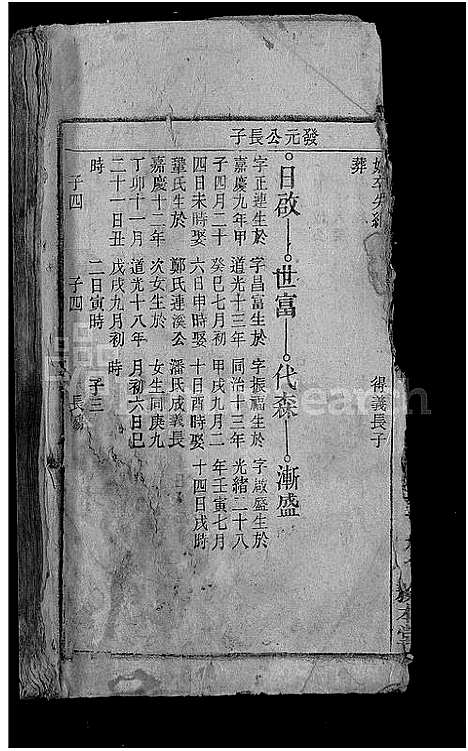 葬
得義長子
發元公長子
日啟
世富
代森
漸盛
字正連生於
嘉慶九年甲
子四月二十
四日未時娶
鞏氏生於
嘉慶十二年
丁卯十一月
二十一日丑
時
子四
字昌富生於
道光十三年
癸巳七月初
六日申時娶
鄭氏連溪公
次女生於
道光十八年
戊戌九月初
二日寅時
子四
字振福生於
同治十三年
甲戌九月二
十日酉時娶
潘氏成義長
女生同庚九
月初六日巳
時
子三
長
字啟盛生於
光緒二十八
年壬寅七月
十四日戌時